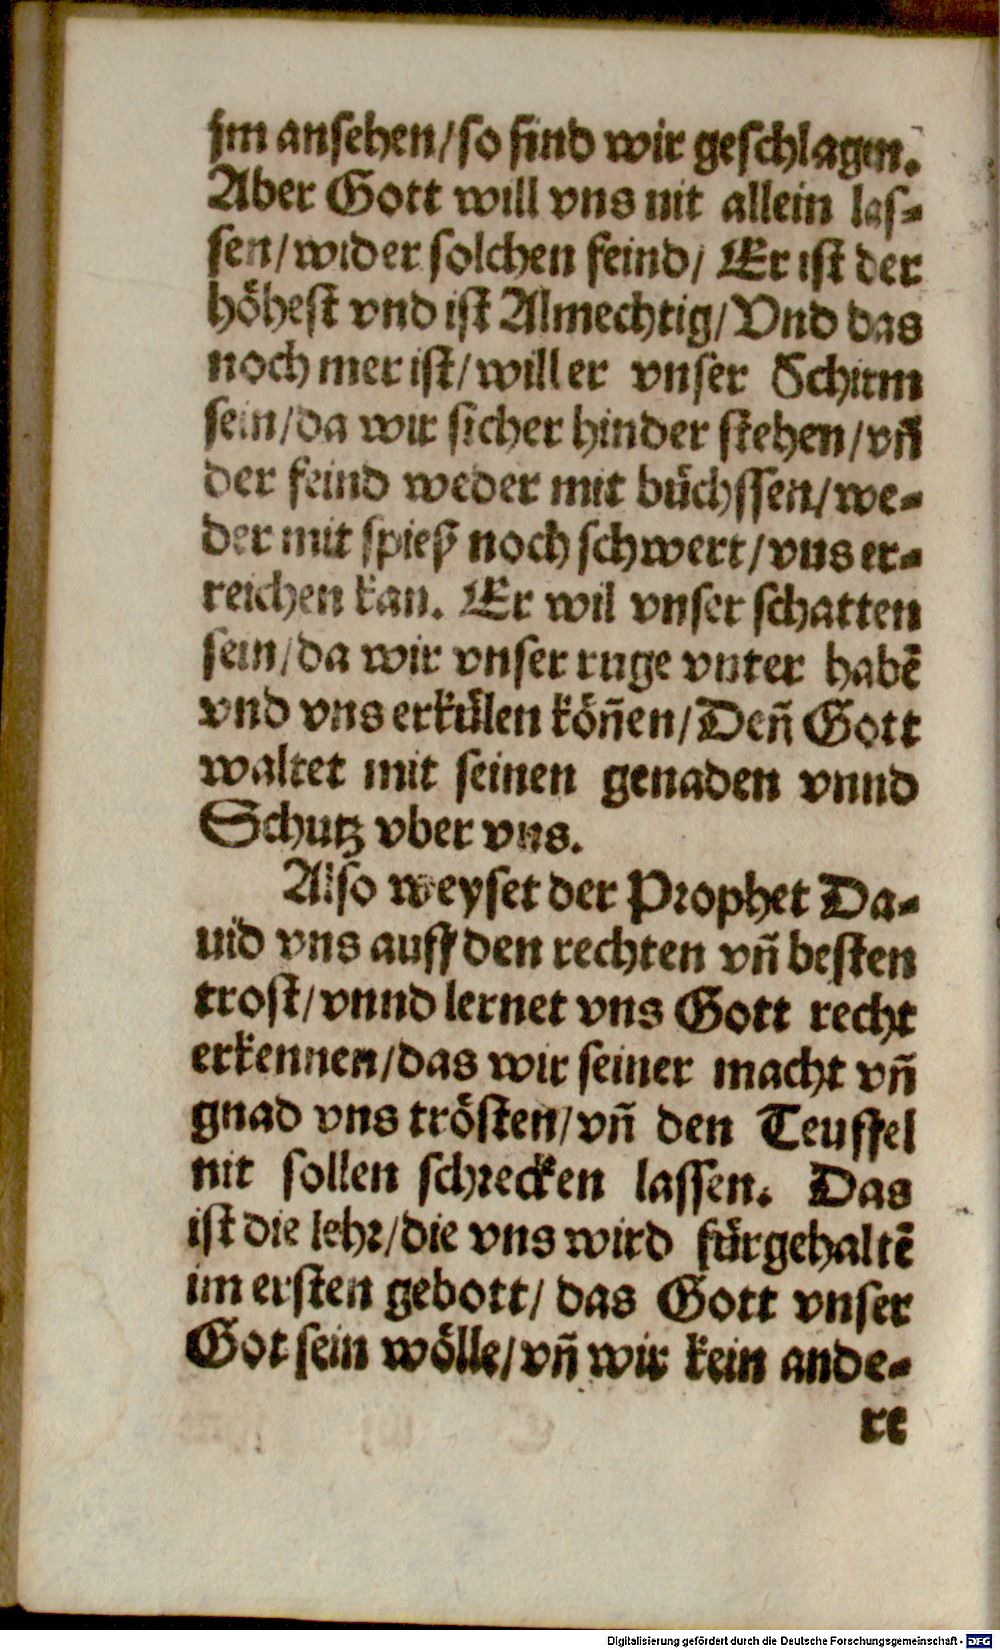 jm ansehen/so sind wir geschlagen.
Aber Gott will vns nit allein las-
sen/wider solchen feind/ Er ist der
höhest vnd ist Almechtig/Vnd das
noch mer ist/will er vnser Schirm
sein/da wir sicher hinder stehen/vñ
der feind weder mit büchssen/we-
der mit spieß noch schwert/vns er-
reichen kan. Er wil vnser schatten
sein/da wir vnser ruge vnter habē
vnd vns erkülen köñen/Deñ Gott
waltet mit seinen genaden vnnd
Schutz vber vns.
Also weyset der Prophet Da-
uid vns auff den rechten vñ besten
trost/vnnd lernet vns Gott recht
erkennen/das wir seiner macht vñ
gnad vns trösten/vñ den Teuffel
nit sollen schrecken lassen. Das
ist die lehr/die vns wird fürgehaltē
im ersten gebott/ das Gott vnser
Got sein wölle/vñ wir kein ande-
re
Digitalisierung gefördert durch die Deutsche Forschungsgemeinschaft - DFG